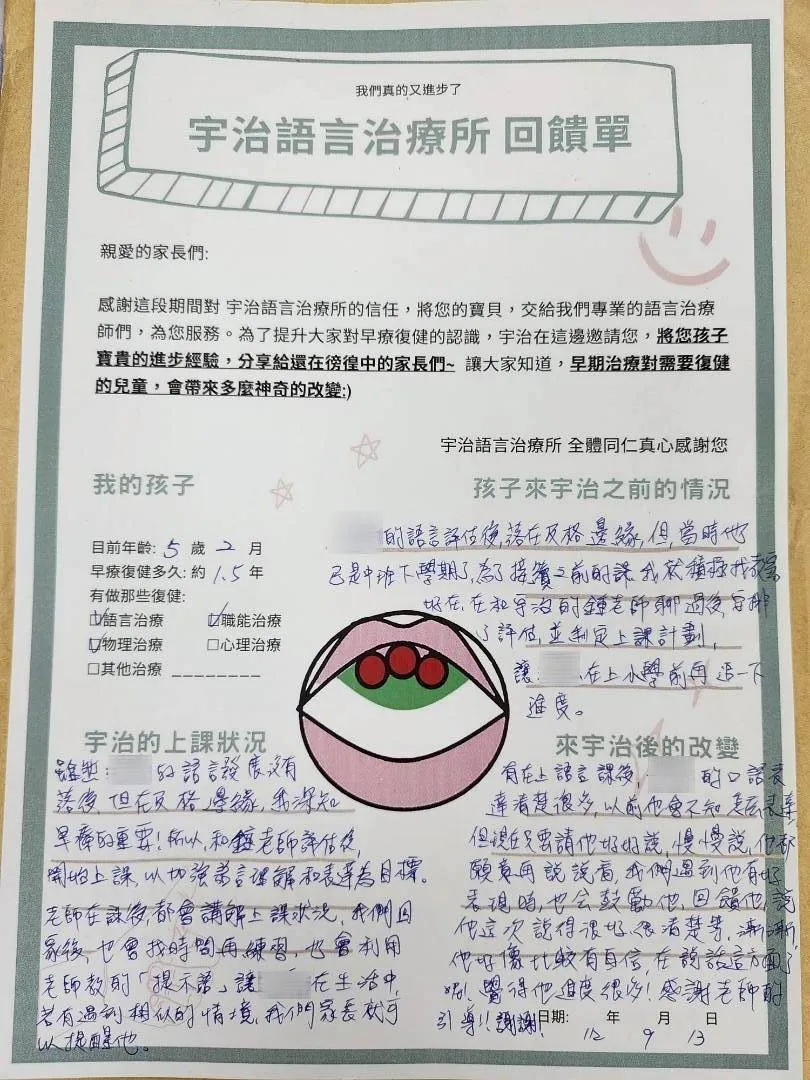 我們真的又進步了
宇治語言治療所 回饋單
親愛的家長們:
感謝這段期間對 宇治語言治療所的信任，將您的寶貝，交給我們專業的語言治療
師們，為您服務。為了提升大家對早療復健的認識，宇治在這邊邀請您，將您孩子
寶貴的進步經驗，分享給還在徬徨中的家長們~ 讓大家知道，早期治療對需要復健
的兒童，會帶來多麼神奇的改變:)
宇治語言治療所 全體同仁真心感謝您
我的孩子
目前年齡: 5 歲 2 月
早療復健多久: 約 1.5 年
有做那些復健:
☑語言治療 ☑職能治療
☑物理治療 □心理治療
□其他治療 ________
孩子來宇治之前的情況
的語言評估後,落在及格邊緣,但,當時他
已是中班下學期了,為了接續之前的課,我就積極找教室
好在,在和宇治的鍾老師聊過後,安排
了評估,並制定上課計劃,
讓 在上小學前再追一下
進度。
宇治的上課狀況
雖然 的語言發展沒有
落後,但在及格邊緣,我深知
早療的重要!所以,和鍾老師評估後,
開始上課,以加強 語言理解和表達為目標。
老師在課後,都會講解上課狀況,我們回
家後,也會找時間再練習,也會利用
老師教的「提示語」讓 在生活中,
若有遇到相似的情境,我們家長就可
以提醒他。
來宇治後的改變
有在上語言課後, 的口語表
達清楚很多,以前他會不知 怎麼表達,
但現在只要請他好好說,慢慢說,他都
願意再說說看,我們遇到他有好
表現時,也會鼓勵他,回饋他,說
他這次說得很好、很清楚等,漸漸,
他好像比較有自信,在說話這方面了
呢!覺得他進度很多!感謝老師的
引導!!謝謝!
日期: 112 年 9 月 13 日